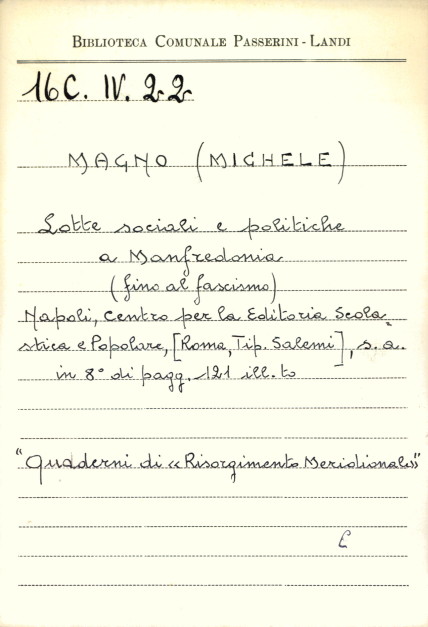 BIBLIOTECA COMUNALE PASSERINI - LANDI
16C. IV. 22
MAGNO (MICHELE)
Lotte sociali e politiche
a Manfredonia
(fino al fascismo)
Napoli, Centro per la Editoria Scola=
stica e Popolare, [Roma, Tip. Salemi], s. a.
in 8° di pagg. 121 ill.to
"Quaderni di «Risorgimento Meridionale»"